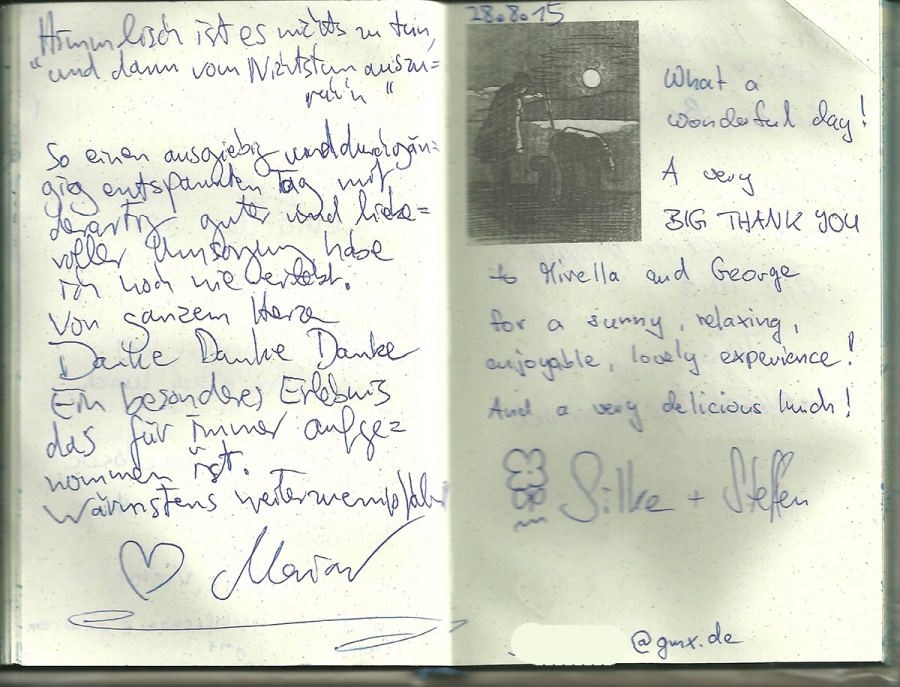 Himmlisch ist es nichts zu tun,
"und dann vom Nichtstun auszu=
ruh'n"
So einen ausgiebig und durchgän=
gig entspannten Tag mit
derartig guter und liebe=
voller Umsorgung habe
ich noch nie erlebt.
Von ganzem Herzen
Danke Danke Danke
Ein besonderes Erlebnis
das für immer aufge=
nommen ist.
Wärmstens weiterzuempfehlen
28.8.15
What a
wonderful day!
A very
BIG THANK YOU
to Mirella and George
for a sunny, relaxing,
enjoyable, lovely experience!
And a very delicious lunch!
Silke + Steffen
@gmx.de